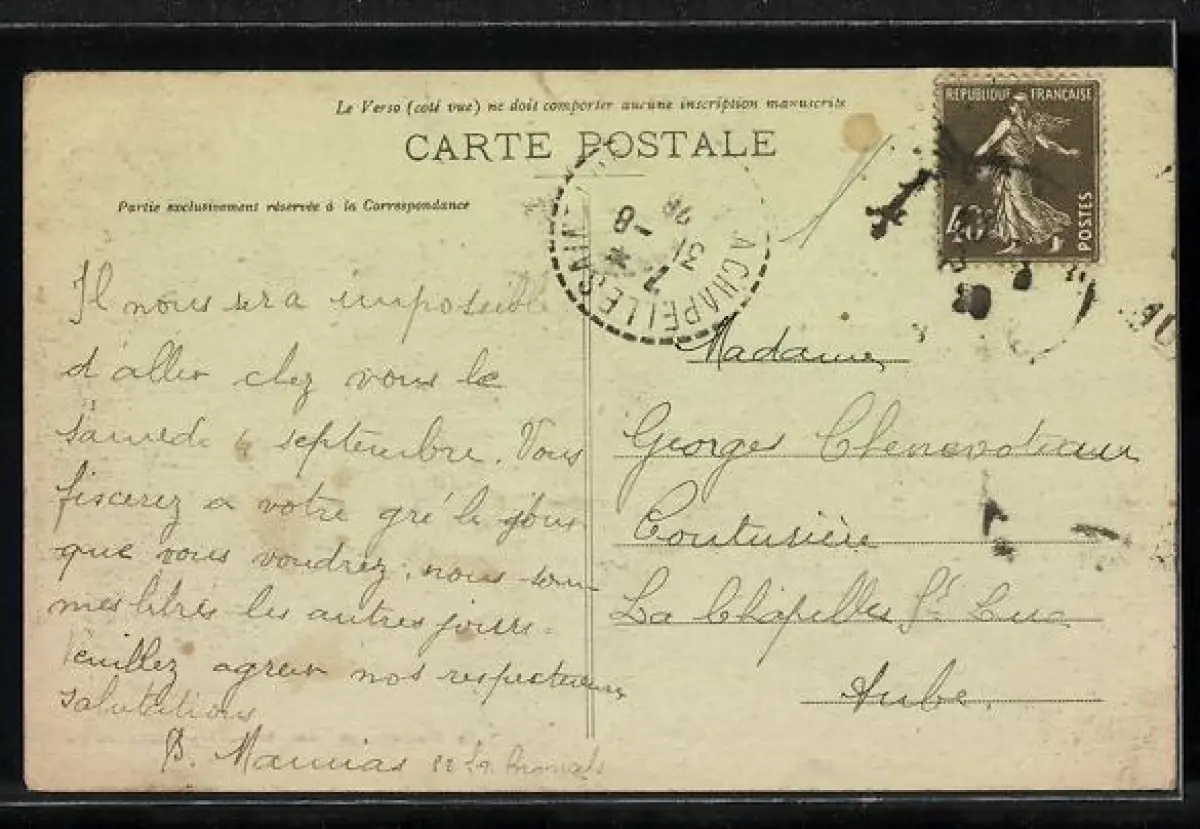 Le Verso (coté vue) ne doit comporter aucune inscription manuscrite
CARTE POSTALE
Partie exclusivement réservée à la Correspondance
REPUBLIQUE FRANÇAISE
40
POSTES
LA CHAPELLE SAINT
8
31
Il nous sera impossible
d'aller chez vous le
samedi 4 septembre. Vous
fiscerez a votre gré le jour
que vous voudrez, nous som
mes libres les autres jours.
Veuillez agreer nos respectueuses
salutations
Madame
Georges
Couturière
La Chapelle St Luc
Aube.